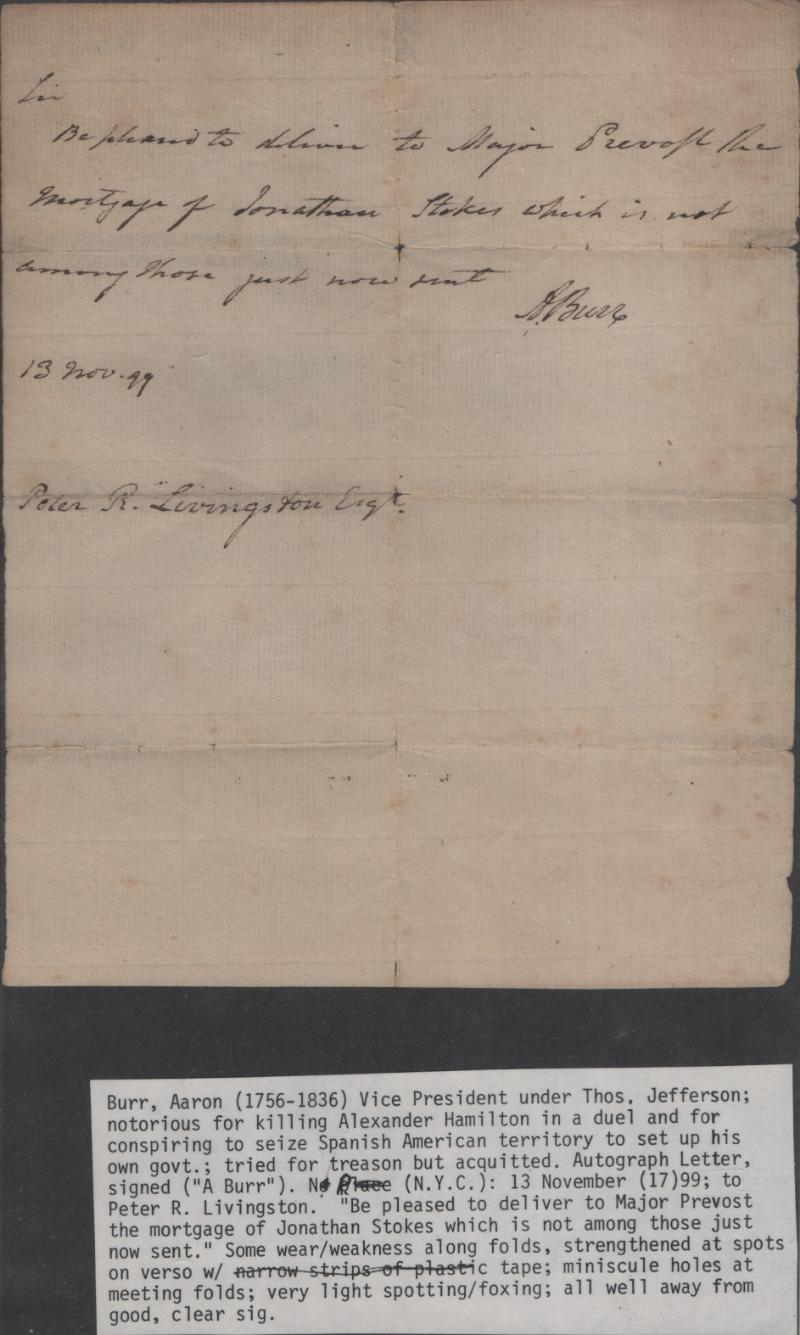 Sir
Be pleased to deliver to Major Prevost the
mortgage of Jonathan Stokes which is not
among those just now sent
A Burr
13 Nov. 99
Peter R. Livingston Esqr.
Burr, Aaron (1756-1836) Vice President under Thos. Jefferson;
notorious for killing Alexander Hamilton in a duel and for
conspiring to seize Spanish American territory to set up his
own govt.; tried for treason but acquitted. Autograph Letter,
signed ("A Burr"). No Place (N.Y.C.): 13 November (17)99; to
Peter R. Livingston. "Be pleased to deliver to Major Prevost
the mortgage of Jonathan Stokes which is not among those just
now sent." Some wear/weakness along folds, strengthened at spots
on verso w/ narrow strips of plastic tape; miniscule holes at
meeting folds; very light spotting/foxing; all well away from
good, clear sig.